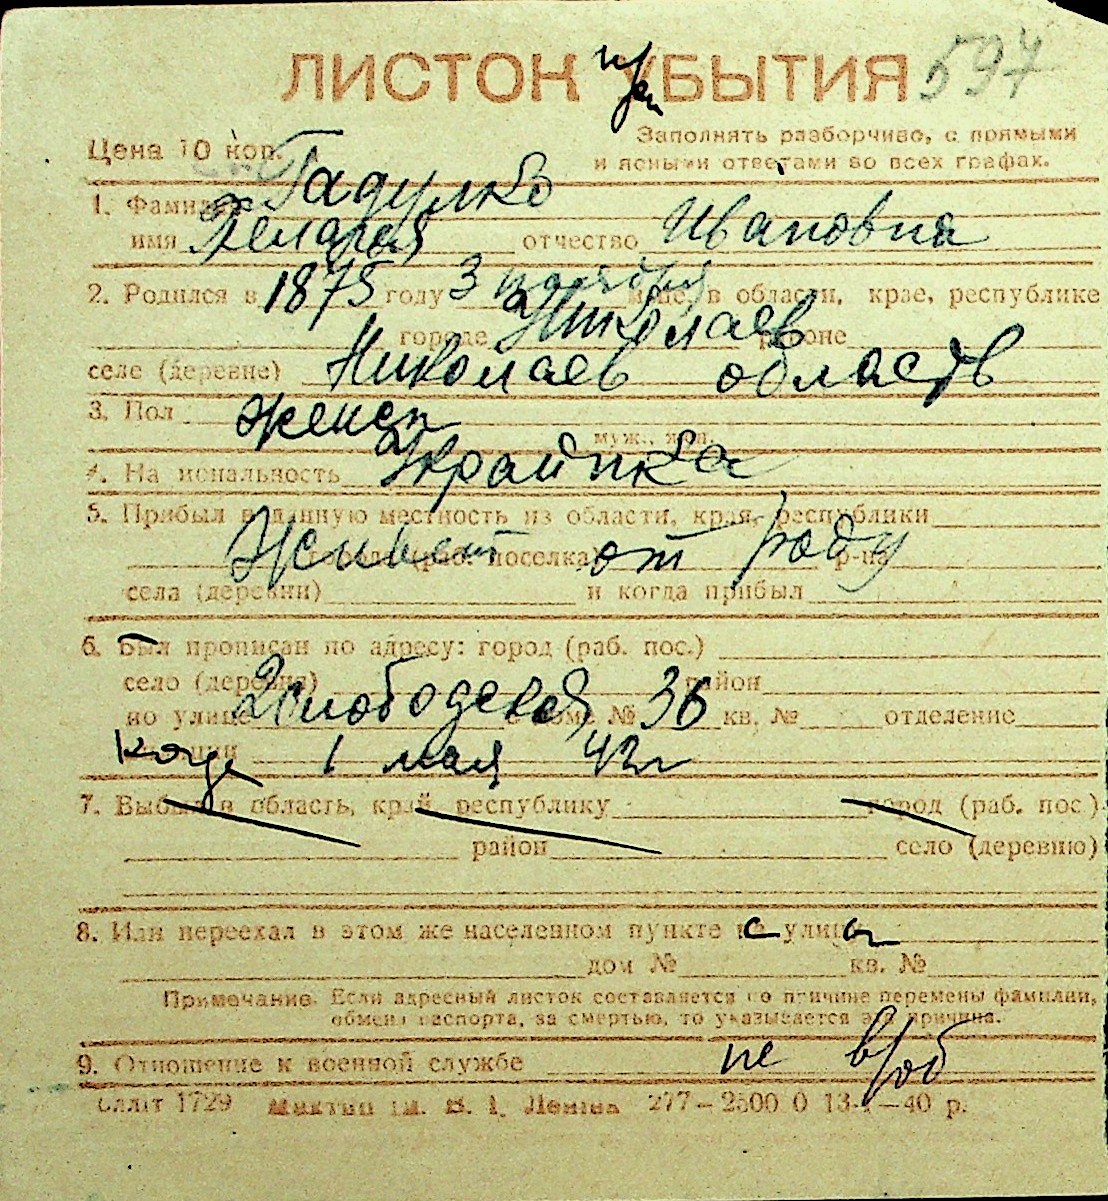 ЛИСТОК УБЫТИЯ 597
Цена 10 коп.
Заполнять разборчиво, с прямыми
и ясными ответами во всех графах.
1. Фамилия Гадулко
имя отчество Ивановна
2. Родился в 1875 году 3 ноября м-це, в области, крае, республике
городе Николаев районе
селе (деревне) Николаев область
3. Пол женск
муж., жен.
4. Национальность Украинка
5. Прибыл в данную местность из области, края, республики
Живет от роду
города (раб. поселка) р-на
села (деревни) и когда прибыл
6. Был прописан по адресу: город (раб. пос.)
село (деревня) район
по улице 2 Слободская в доме № 36 кв. № отделение
милиции
когда 1 мая 42 г
7. Выбыл в область, край, республику город (раб. пос.)
район село (деревню)
8. Или переехал в этом же населенном пункте на улицу
дом № кв. №
Примечание. Если адресный листок составляется по причине перемены фамилии,
обмена паспорта, за смертью, то указывается эта причина.
9. Отношение к военной службе не в/об
1729 Леніна 277—2500 0 —40 р.